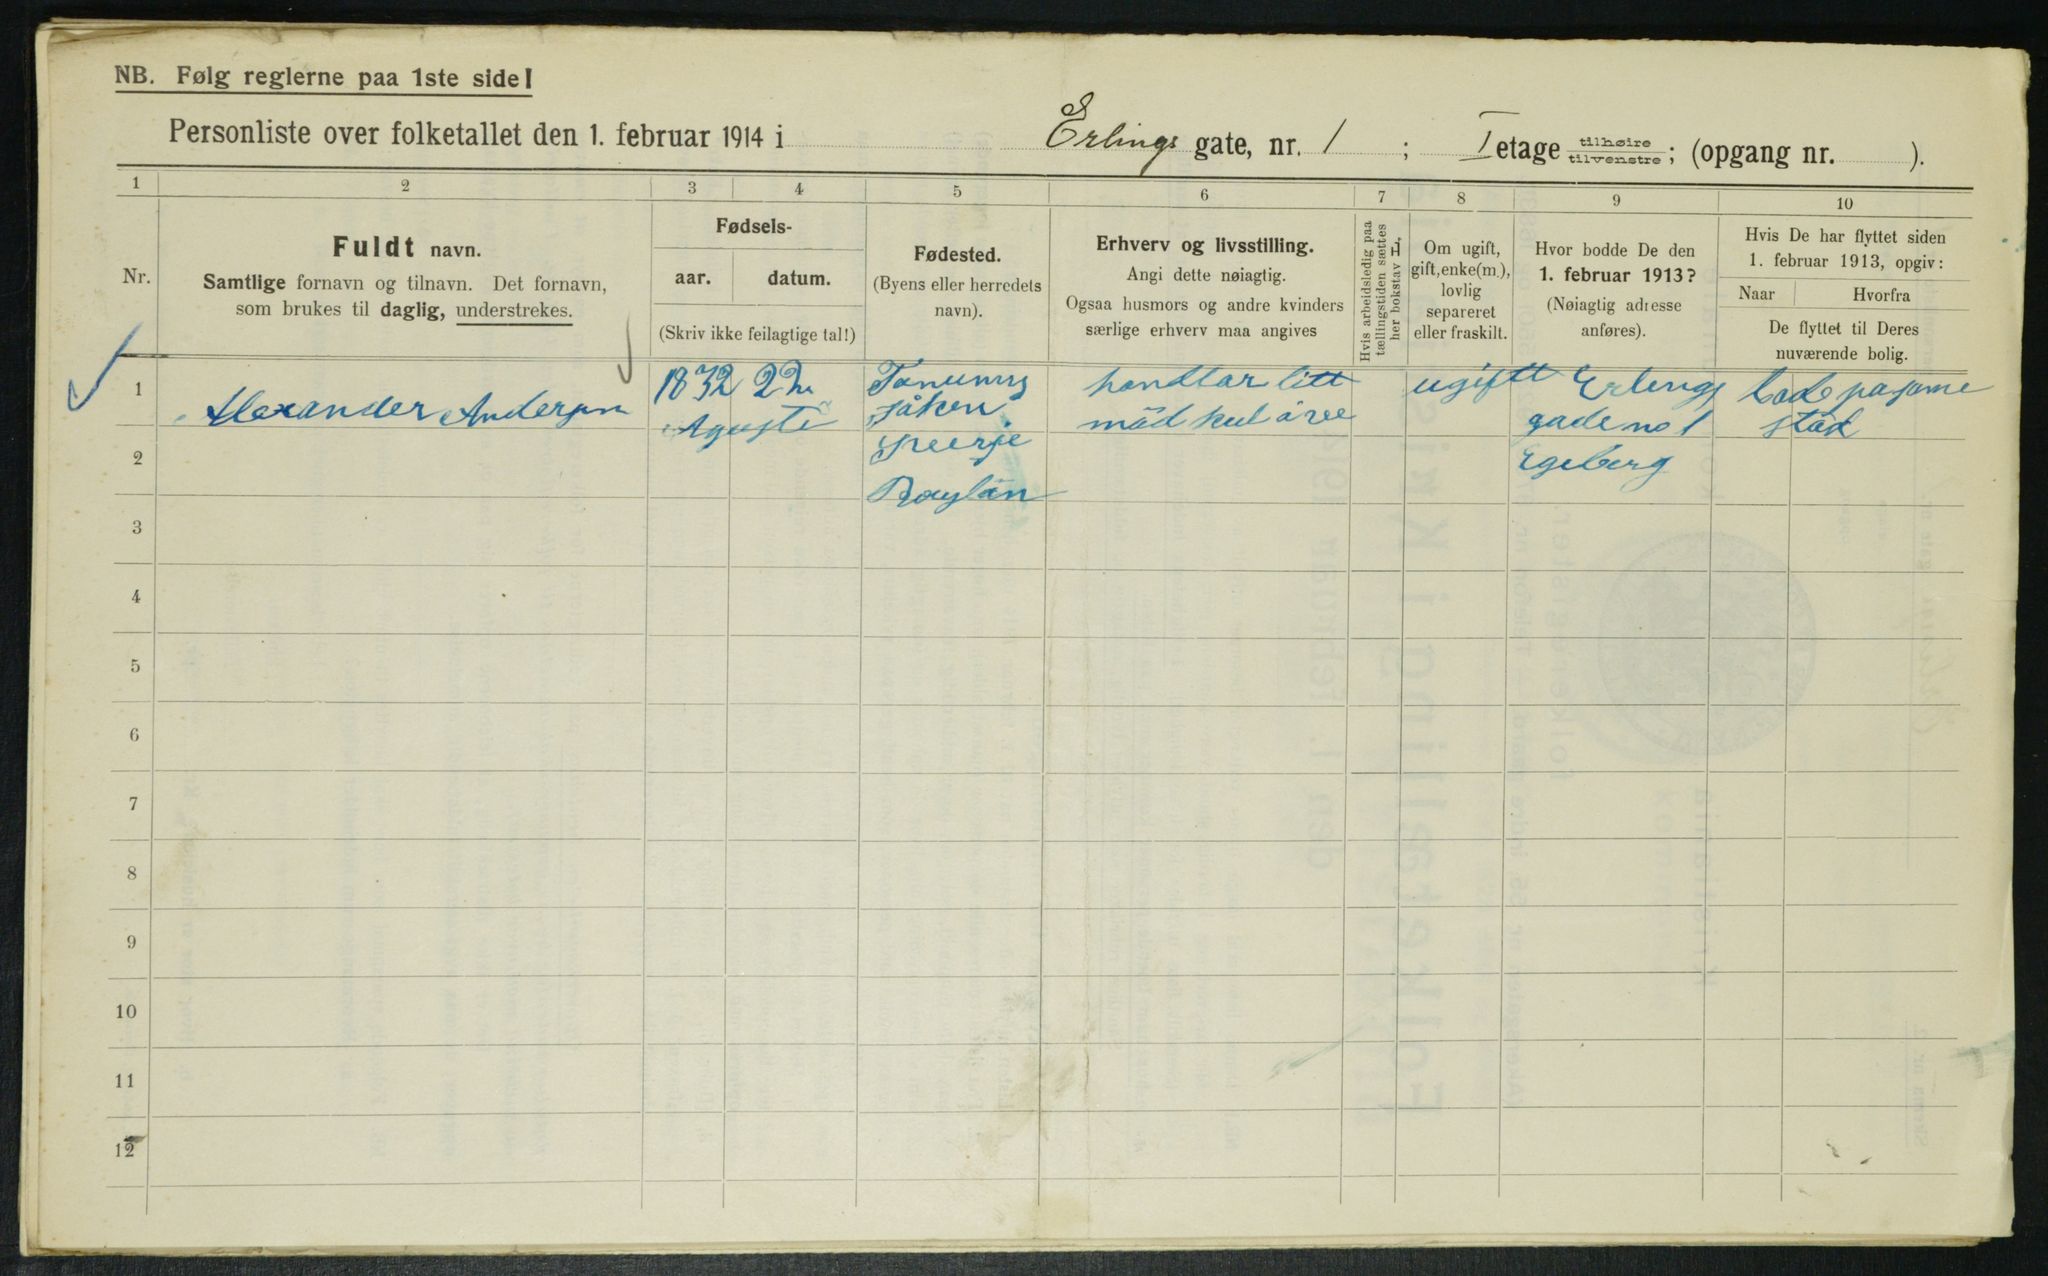 NB. Følg reglerne paa 1ste side!
Personliste over folketallet den 1. februar 1914 i Erlings gate, nr. 1 ; I etage tilhøire tilvenstre; (opgang nr. ).
1 2 3 4 5 6 7 8 9 10
Nr.
Fuldt navn.
Samtlige fornavn og tilnavn. Det fornavn,
som brukes til daglig, understrekes.
Fødsels-
aar. datum.
(Skriv ikke feilagtige tal!)
Fødested.
(Byens eller herredets
navn).
Erhverv og livsstilling.
Angi dette nøiagtig.
Ogsaa husmors og andre kvinders
særlige erhverv maa angives
Hvis arbeidsledig paa
tællingstiden sættes
her bokstav L.
Om ugift,
gift, enke(m.),
lovlig
separeret
eller fraskilt.
Hvor bodde De den
1. februar 1913?
(Nøiagtig adresse
anføres).
Hvis De har flyttet siden
1. februar 1913, opgiv:
Naar Hvorfra
De flyttet til Deres
nuværende bolig.
1
Alexander Anderson
1832 22
Agusti
Tanums
såken
Baylän
handlar litt
mäd
ugift
Erlings
gade no 1
Egeberg
bode pa same
städ
2
3
4
5
6
7
8
9
10
11
12